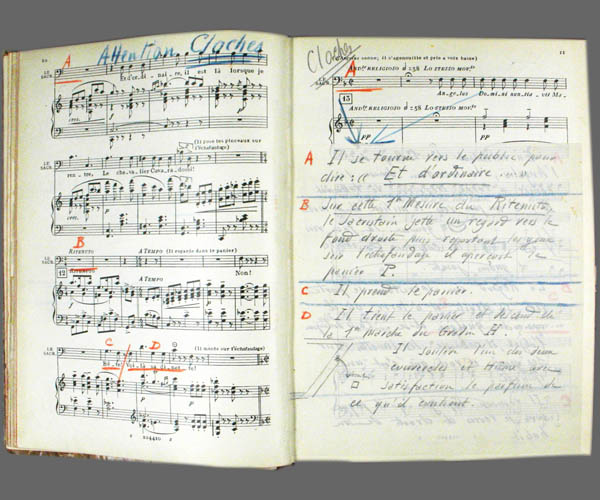 10
Attention Cloches
A
LE
SACR.
Et d'or_di_nai_re, il est là lorsque je
(Il pose les pinceaux sur
l'échafaudage)
LE
SACR.
ren_tre, Le che_va_lier Cava_ra_dossi!
B
RITENUTO
A TEMPO (Il regarde dans le panier)
LE
SACR.
Non!
12
RITENUTO
A TEMPO
C
D
(Il monte sur l'échafaudage)
LE
SACR.
E. 104410 R.
11
Cloches
(l'Angelus sonne; il s'agenouille et prie à voix basse)
A
AND.te RELIGIOSO ♩=58 LO STESSO MOV.to
LE
SACR.
An_ge_lus Do_mi_ni nun_tia_vit Ma_
13
AND.te RELIGIOSO ♩=58 LO STESSO MOV.to
PP
PP
A Il se tourne vers le public pour
dire: (( Et d'ordinaire ...
B Sur cette 1re Mesure du Ritenuto
le Sacristain jette un regard vers le
fond droite puis reportant
l'échafaudage il aperçoit le
panier P.
C Il prend le panier.
D Il tient le panier et descend de
la 1re Marche du Gradin H.
Il soulève l'un des deux
couvercles et Hume avec
satisfaction le parfum de
ce qu'il contient.